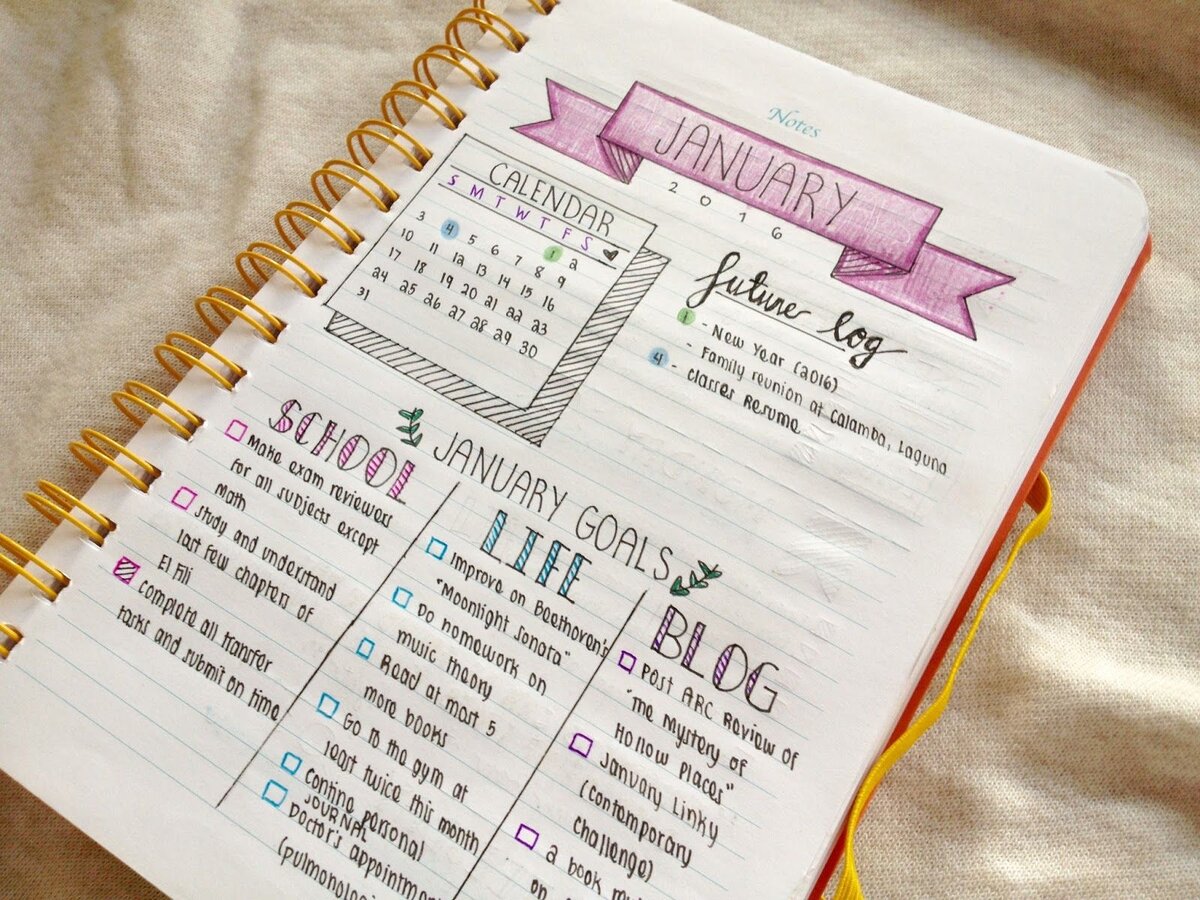 Notes
JANUARY
2016
CALENDAR
S M T W T F S
1 2
3 4 5 6 7 8 9
10 11 12 13 14 15 16
17 18 19 20 21 22 23
24 25 26 27 28 29 30
31
future log
1 - New Year (2016)
- Family reunion at Calamba, Laguna
4 - Classes Resume
JANUARY GOALS
SCHOOL
Make exam reviewers
for all subjects except
Math
Study and understand
last few chapters of
El Fili
Complete all transfer
tasks and submit on time
LIFE
Improve on Beethoven's
"Moonlight Sonata"
Do homework on
music theory
Read at most 5
more books
Go to the gym at
least twice this month
Contine personal
JOURNAL
Doctor's appointment
BLOG
Post ARC Review of
"The Mystery of
Hollow Places"
January Linky
(Contemporary
Challenge)
a book
on